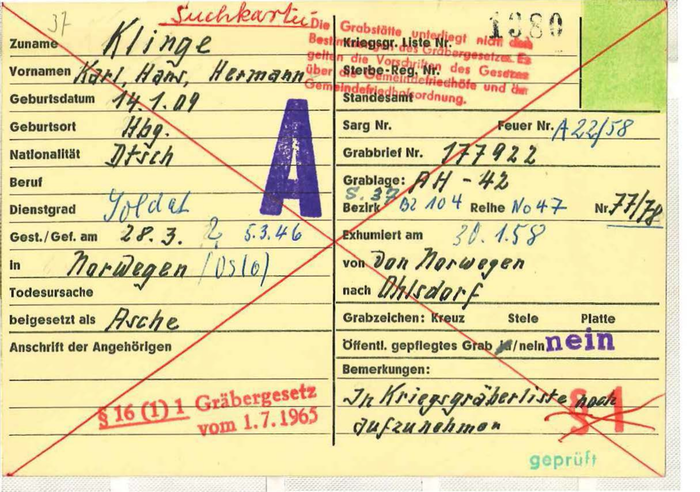 37
Suchkartei
1380
Zuname Klinge
Vornamen Karl, Hans, Hermann
Geburtsdatum 14.1.09
Geburtsort Hbg.
Nationalität Dtsch
Beruf
Dienstgrad Soldat
Gest./Gef. am 28.3. 2 5.3.46
In Norwegen (Oslo)
Todesursache
beigesetzt als Asche
Anschrift der Angehörigen
A
§ 16 (1) 1 Gräbergesetz
vom 1.7.1965
Die Grabstätte unterliegt nicht den
Bestimmungen des Gräbergesetzes. Es
gelten die Vorschriften des Gesetzes
über die Gemeindefriedhöfe und der
Gemeindefriedhofsordnung.
Kriegsgr. Liste Nr.
Sterbe-Reg. Nr.
Standesamt
Sarg Nr. Feuer Nr. A 22/58
Grabbrief Nr. 177922
Grablage: AH - 42
S. 37
Bezirk BZ 104 Reihe No 47 Nr. 77/78
Exhumiert am 30.1.58
von Von Norwegen
nach Ohlsdorf
Grabzeichen: Kreuz Stele Platte
Öffentl. gepflegtes Grab ja/nein nein
Bemerkungen:
In Kriegsgräberliste noch
aufzunehmen
§ 1
geprüft